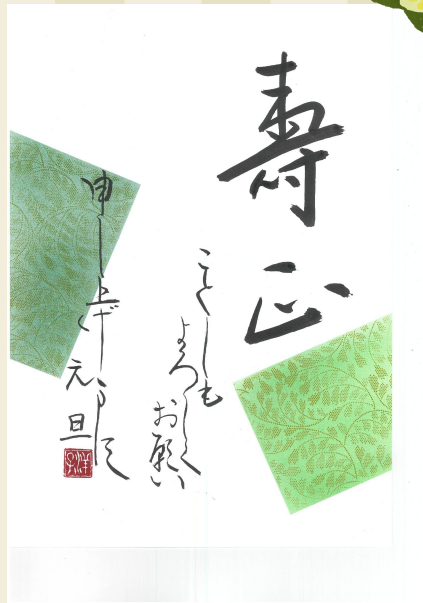 寿正
ことしも
よろしく
お願い
申し上げます
元旦